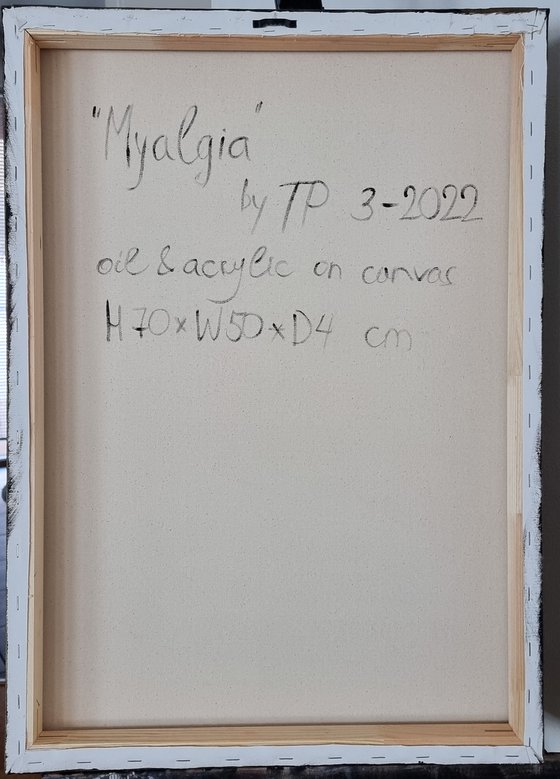 "Myalgia"
by TP 3-2022
oil & acrylic on canvas
H70xW50xD4 cm